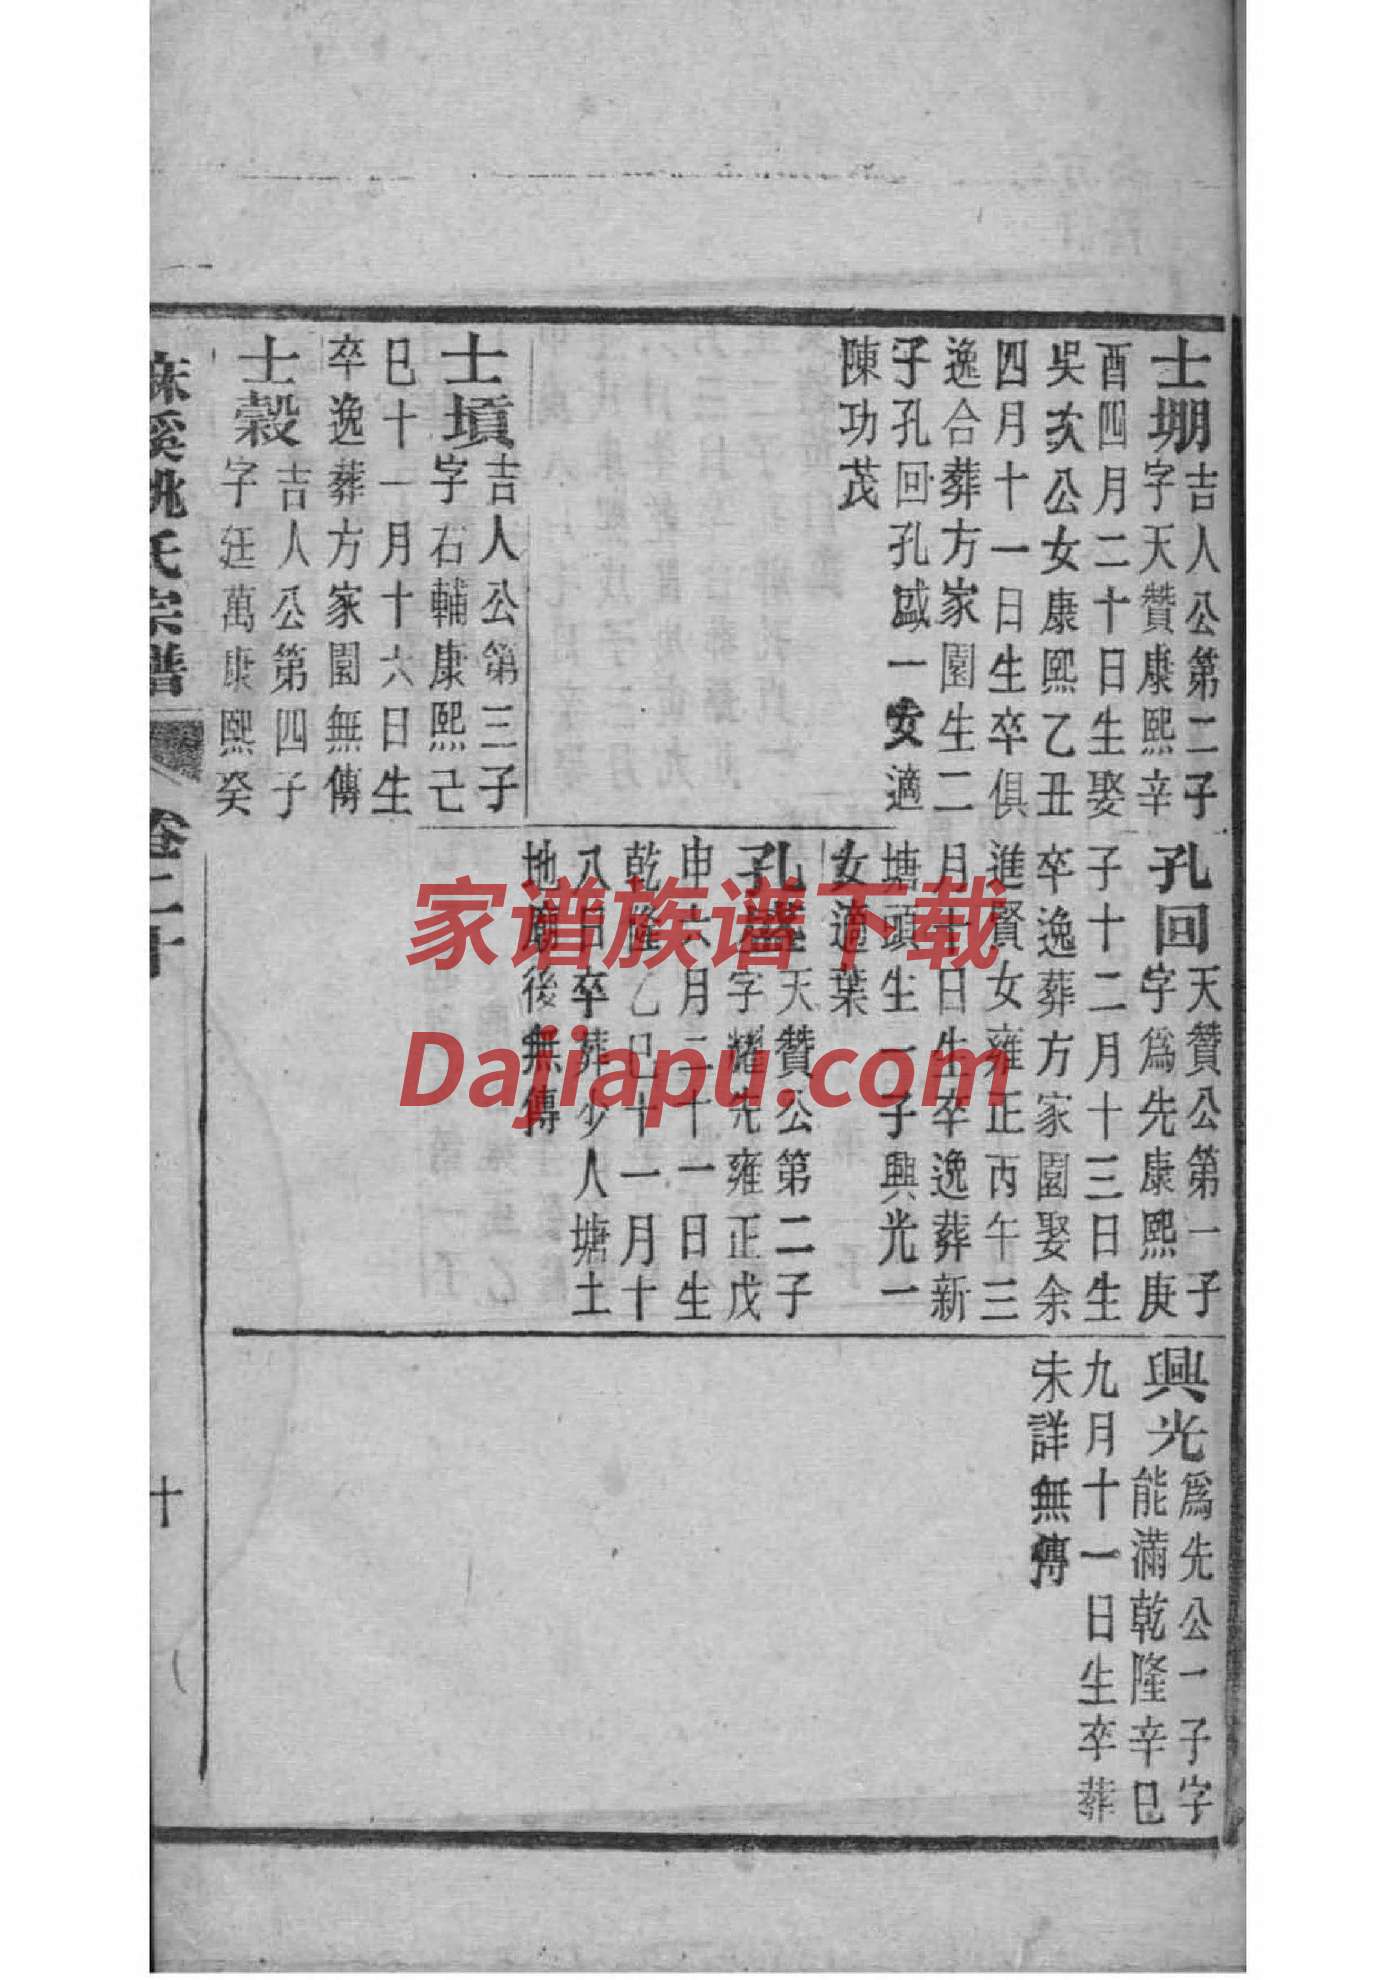 士堋
吉人公第二子
字天贊康熙辛
酉四月二十日生娶
吳次公女康熙乙丑
四月十一日生卒俱
逸合葬方家園生二
子孔回孔盛一女適
陳功茂
士墳
吉人公第三子
字石輔康熙己
巳十一月十六日生
卒逸葬方家園無傳
士穀
吉人公第四子
字廷萬康熙癸
孔回
天贊公第一子
字爲先康熙庚
子十二月十三日生
卒逸葬方家園娶余
進賢女雍正丙午三
月十日生卒逸葬新
塘頭生一子興光一
女適葉
孔盛
天贊公第二子
字耀先雍正戊
申六月二十一日生
乾隆乙巳十一月十
八日卒葬少人塘土
地廟後無傳
興光
爲先公一子字
能滿乾隆辛巳
九月十一日生卒葬
未詳無傳
麻溪姚氏宗譜
卷二十
十
家谱族谱下载
Dajiapu.com